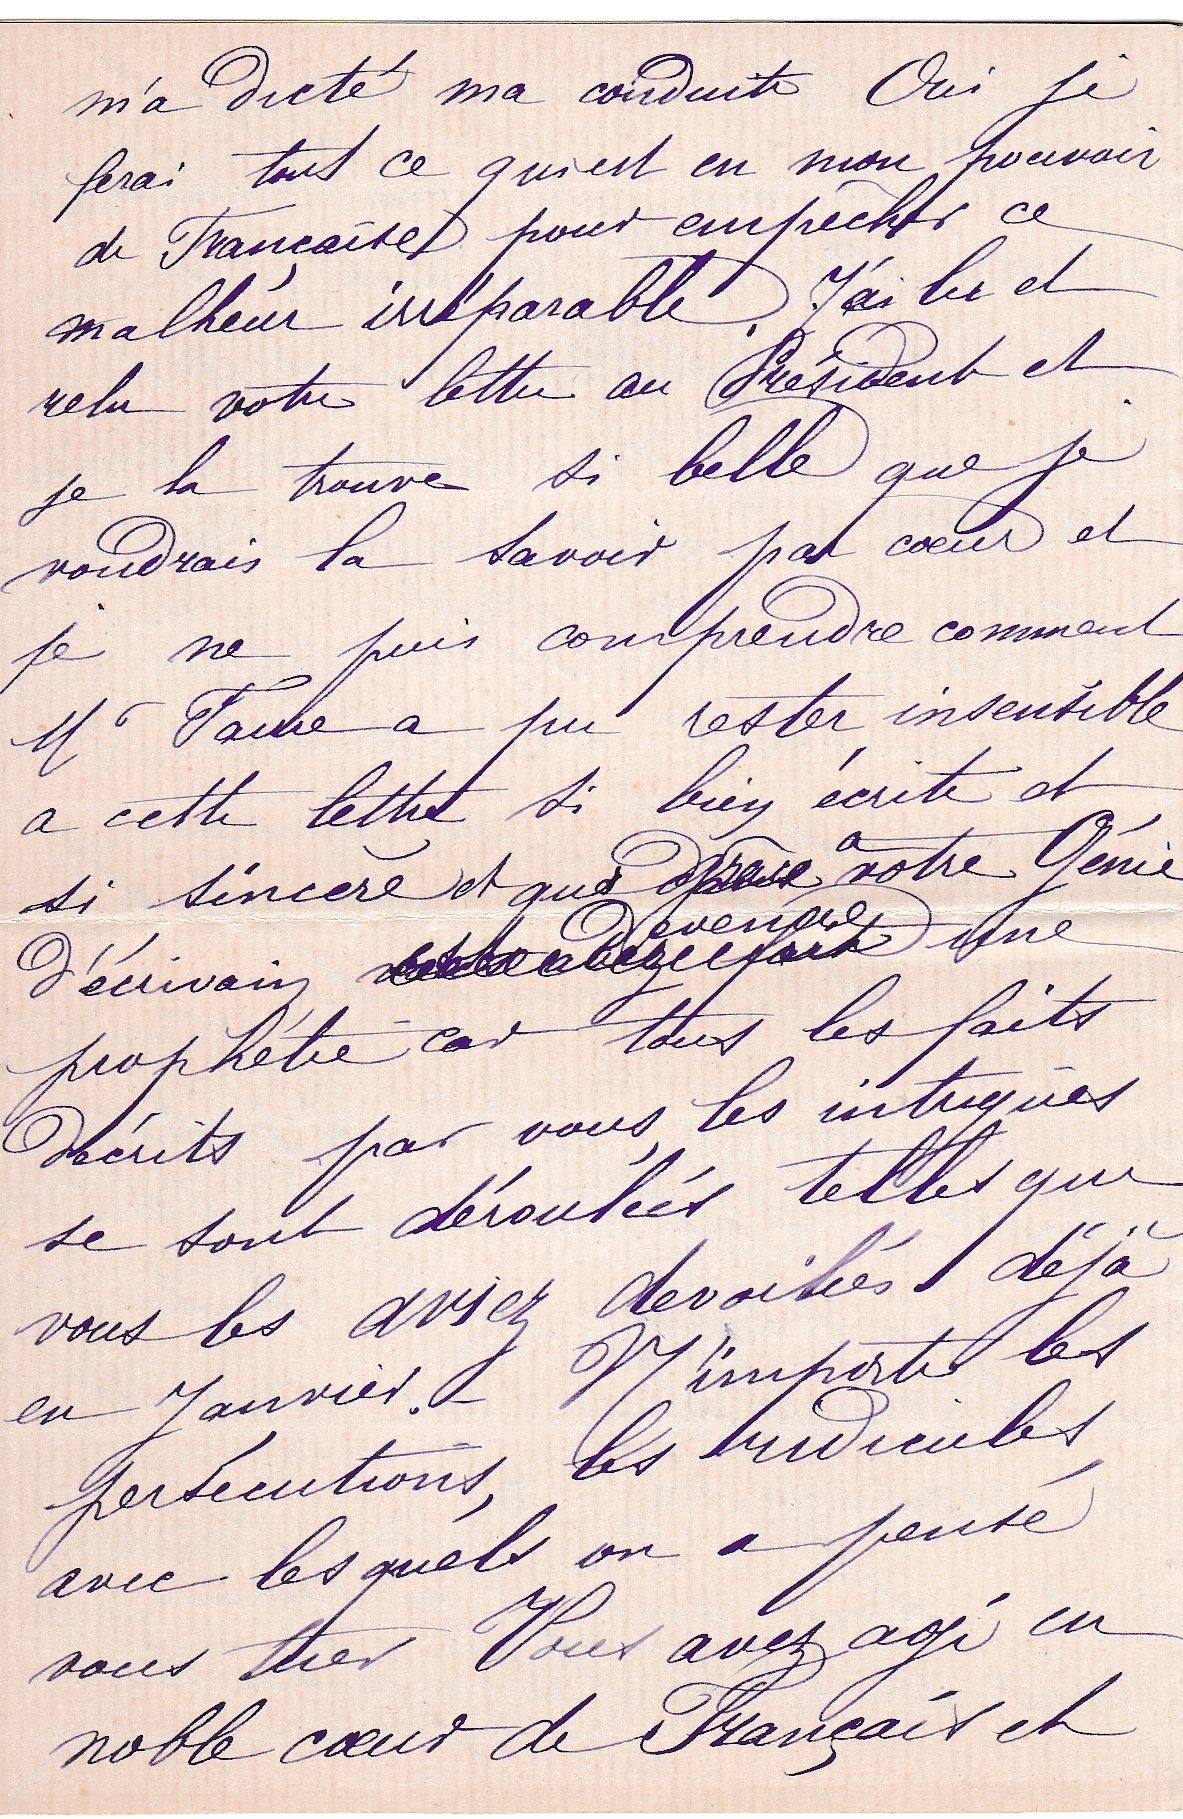 m'a dicté ma conduite Oui je
ferai tout ce qui est en mon pouvoir
de Française pour empêcher ce
malheur irréparable. J'ai lu et
relu votre lettre au Président et
je la trouve si belle que je
voudrais la savoir par cœur et
je ne puis comprendre comment
Mr Faure a pu rester insensible
a cette lettre si bien écrite et
si sincère et qui grace a votre Génie
d'écrivain devenue une
prophétie car tous les faits
décrits par vous, les intrigues
se sont déroulées telles que
vous les aviez devoilées déjà
en Janvier. - N'importe les
persécutions, les ridicules,
avec lesquels on a pensé
vous tuer Vous avez agi en
noble cœur de Français et